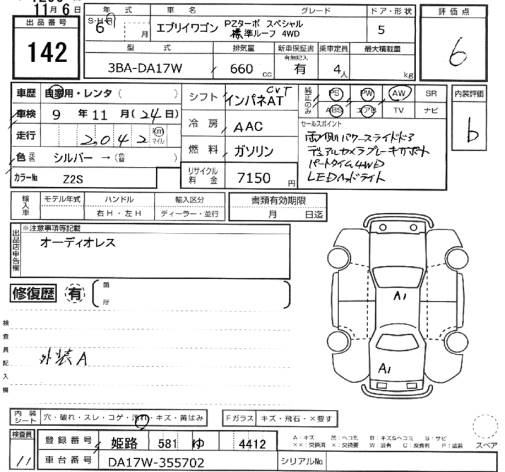 11月6日
出品番号 S・H・R 年式 車名 グレード ドア・形状 評価点
142 6 月 エブリイワゴン PZターボ スペシャル 標準ルーフ 4WD 5 6
型式 排気量 新車保証書 有無記入 乗車定員 最大積載量
3BA-DA17W 660 cc 有 4人 kg
車歴 自家用・レンタ( ) シフト インパネAT CVT PS PW AW SR 内装評価
車検 9年11月(24日) 冷房 AAC ABS エアB TV ナビ b
走行 2,042 km マイル 燃料 ガソリン セールスポイント
色 元色 シルバー→(色替) リサイクル料金 7150円 両側パワースライドドア
カラーNo Z2S デュアルカメラブレーキサポート
パートタイム4WD
LEDヘッドライト
輸入車 モデル年式 ハンドル 輸入区分 書類有効期限
右H・左H ディーラー・並行 月 日迄
出品店申告欄 ※注意事項等記載
オーディオレス
修復歴 有 箇所
A1
検査員記入欄 外装A
A1
内装シート 穴・破れ・スレ・コゲ・汚れ・キズ・黄ばみ Fガラス キズ・飛石・×要す
検査員 登録番号 姫路 581 ゆ 4412
11 車台番号 DA17W-355702 シリアルNo
A:キズ B:キズ&ヘコミ S:サビ
スペア